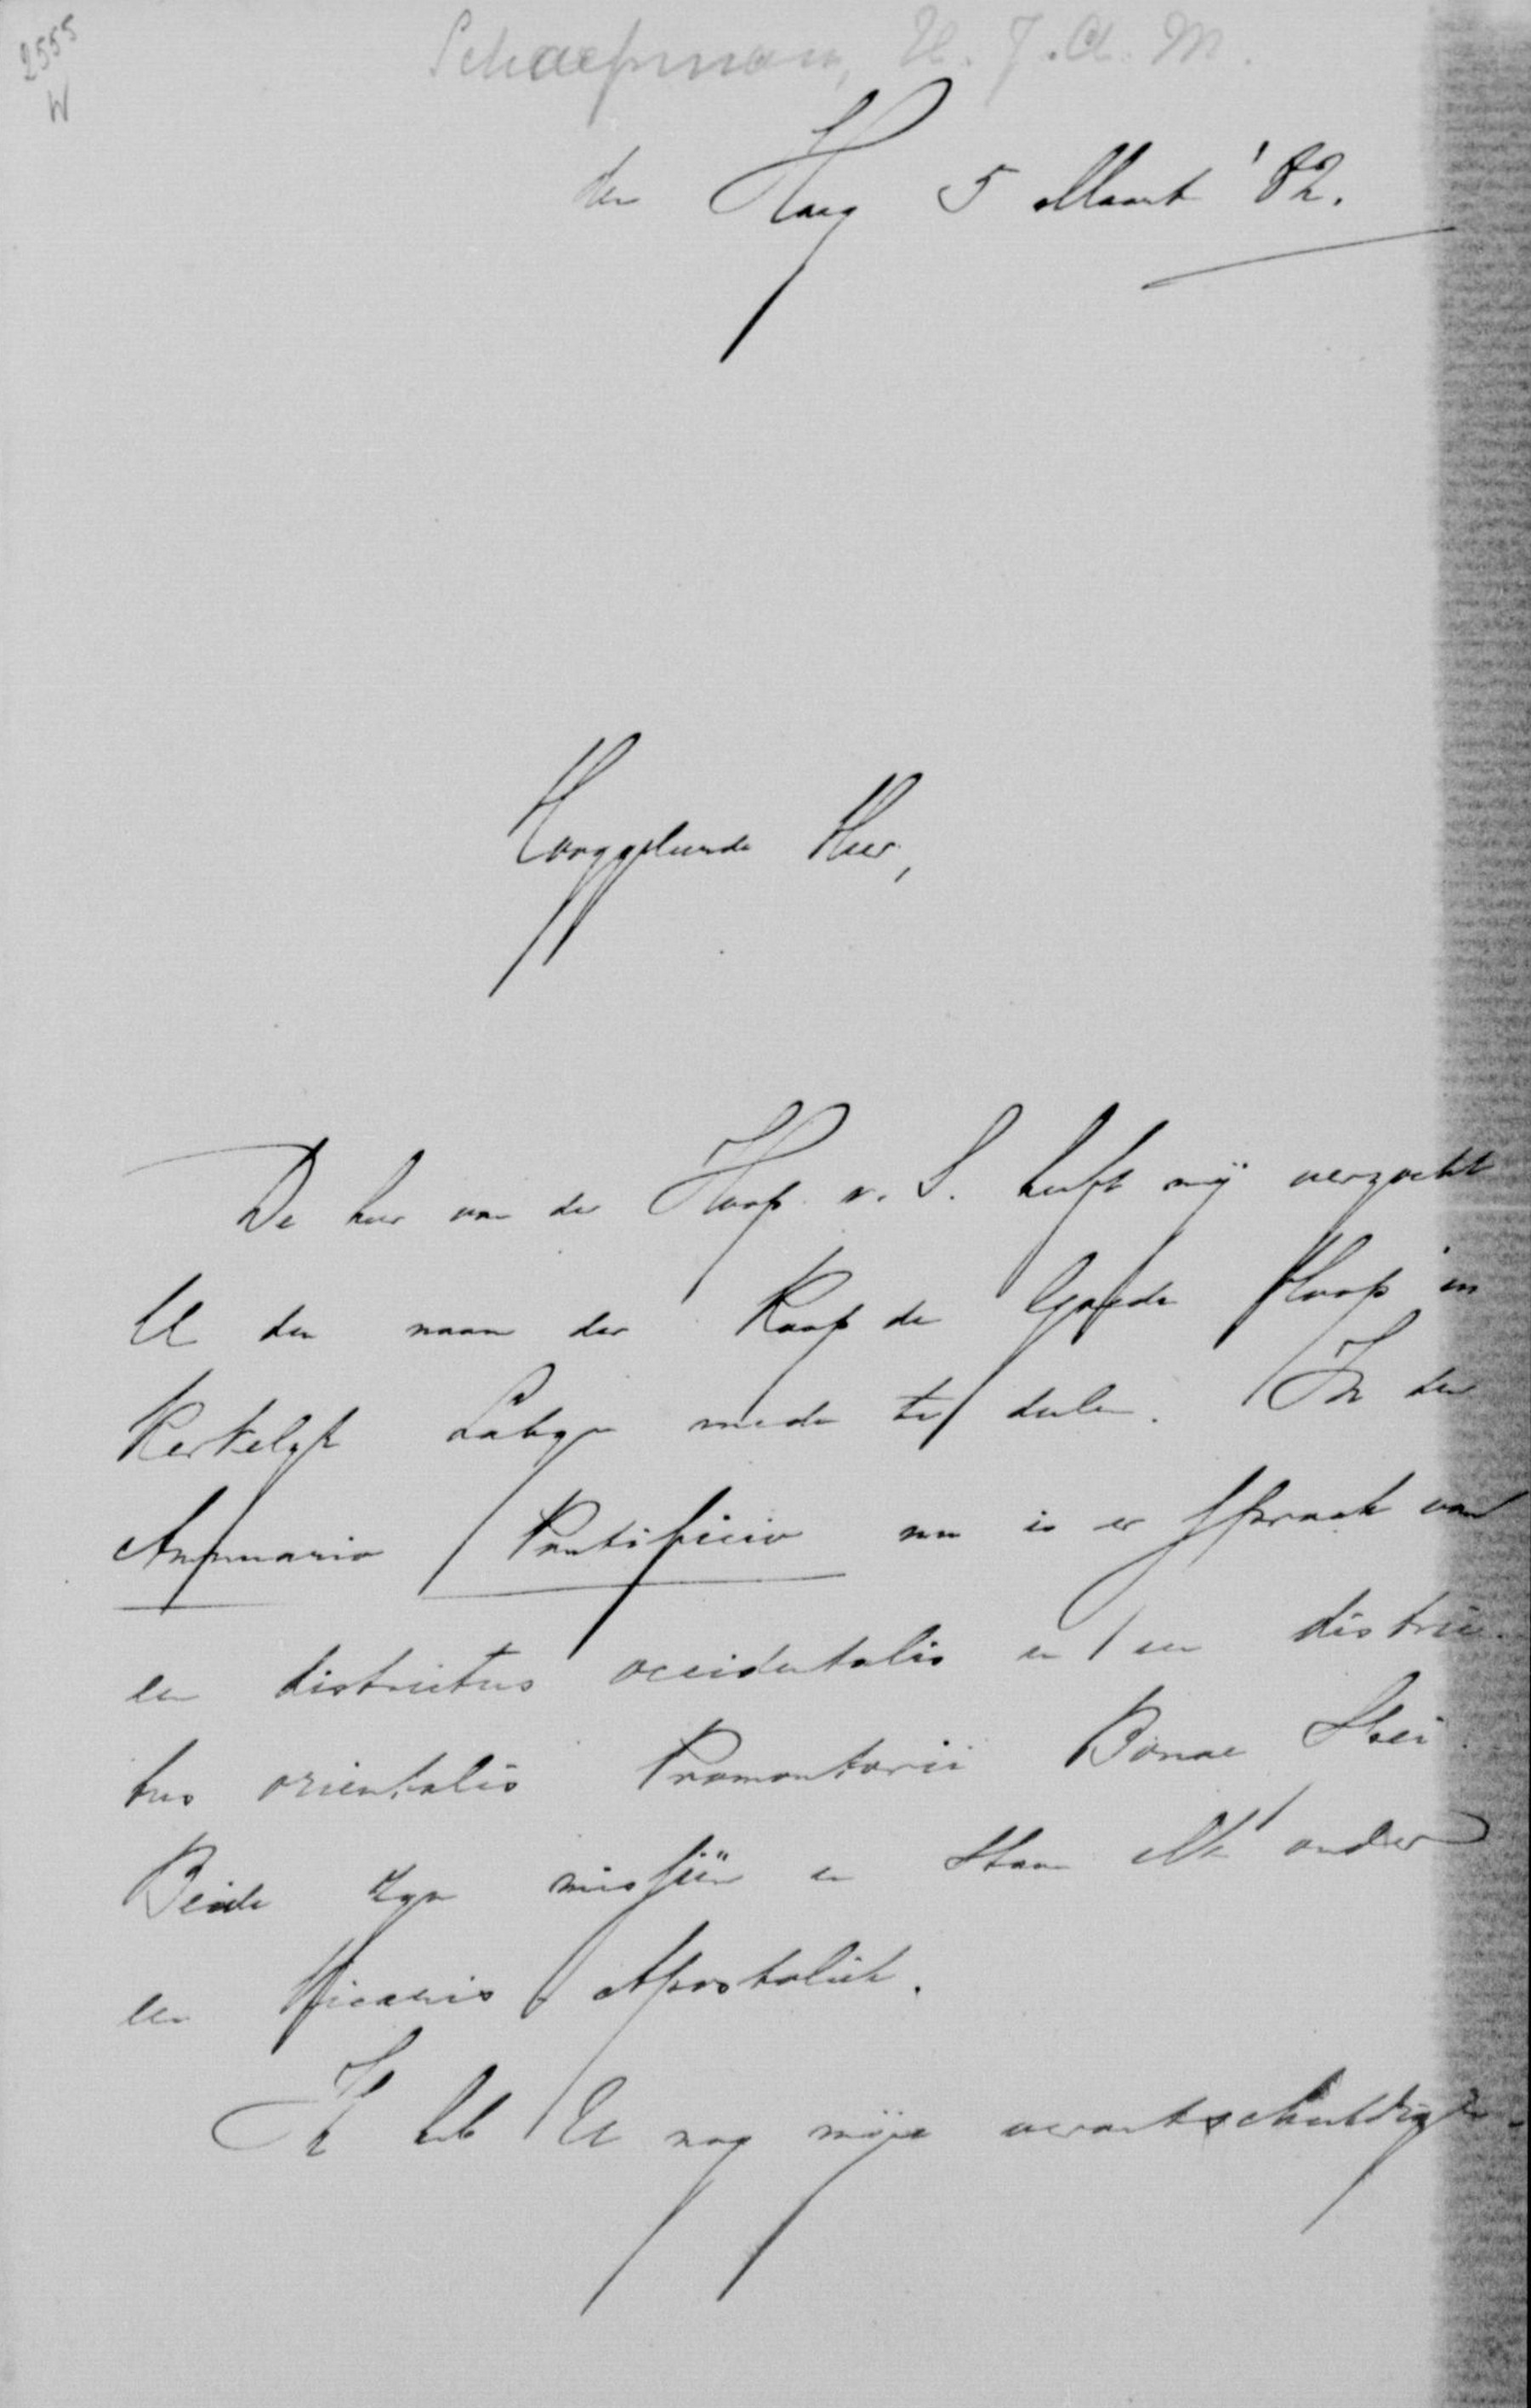 2555
W
Schaepman, H. J. A. M.
den Haag 5 Maart '82.
Hooggeleerde Heer,
De heer van der Hoop v. S. heeft mij verzocht
U den naam der Kaap de Goede Hoop in
Kerkelyk Latyn mede te deelen. In den
Annuario Pontificio nu is er spraak van
een districtus occidentalis en een distric-
tus orientalis Promontorii Bonae Spei.
Beide zyn missiën en staan elk onder
een Vicaris Apostoliek.
Ik heb U nog mijne verontschuldigin-